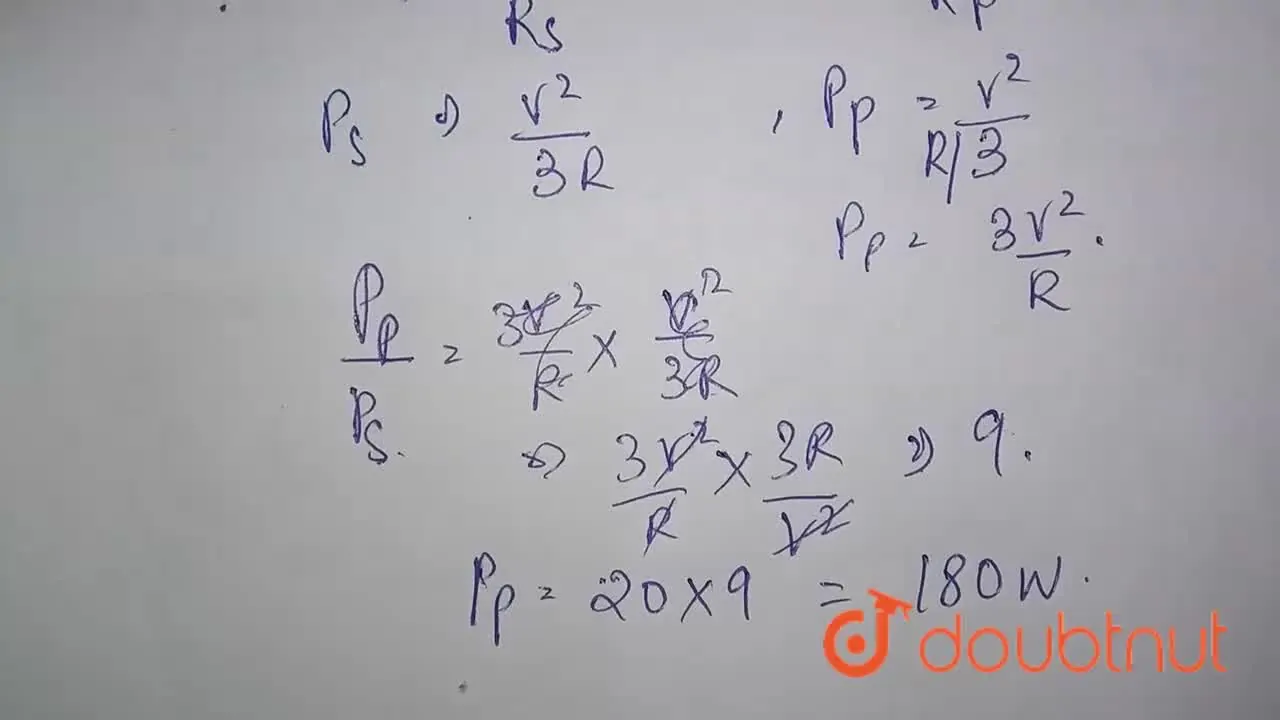 Rs Rp
Ps ⇒ V²/3R , Pp = V²/R/3
Pp = 3V²/R .
Pp/Ps. = 3V²/R × V²/3R
⇒ 3V²/R × 3R/V² ⇒ 9.
Pp = 20×9 = 180W.
doubtnut